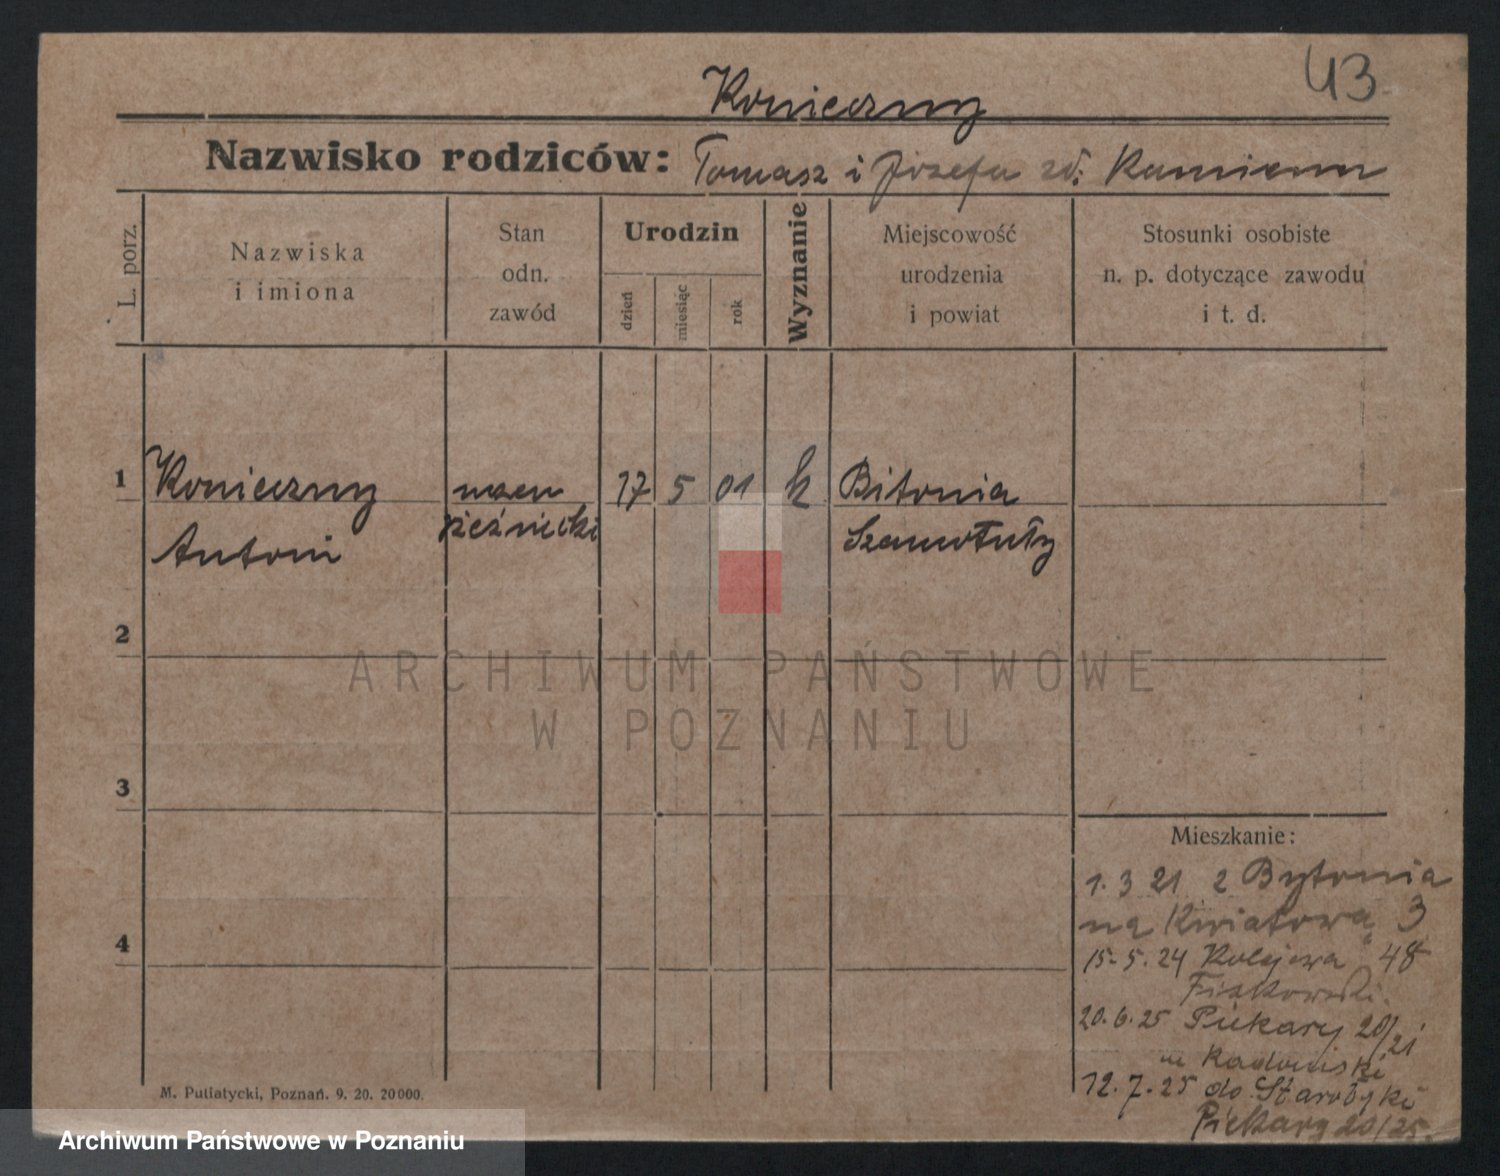 43
Konieczny
Nazwisko rodziców: Tomasz i Józefa zd.
L. porz.
Nazwiska
i imiona
Stan
odn.
zawód
Urodzin
dzień
miesiąc
rok
Wyznanie
Miejscowość
urodzenia
i powiat
Stosunki osobiste
n. p. dotyczące zawodu
i t. d.
1 Konieczny uczeń 17 5 01 k Bitonia
Antoni rzeźnicki Szamotuły
2
ARCHIWUM PAŃSTWOWE
W POZNANIU
3
4
Mieszkanie:
1.3 21 z Bytonia
na Kwiatową 3
15.5.24 Kolejowa 48
20.6.25 Piekary 20/21
12.7.25 do
Piekary 20/25.
M. Putiatycki, Poznań. 9. 20. 20000.
Archiwum Państwowe w Poznaniu